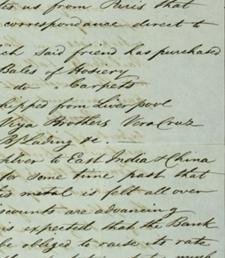 us from Paris that
correspondance direct to
said friend has purchased
Bales of Hosiery
do Carpets
shipped from Liverpool
Brothers Vera Cruz
B/Lading &c.
silver to East India & China
for some time past that
metal is felt all over
discounts are advancing
is expected that the Bank
be obliged to raise its rate